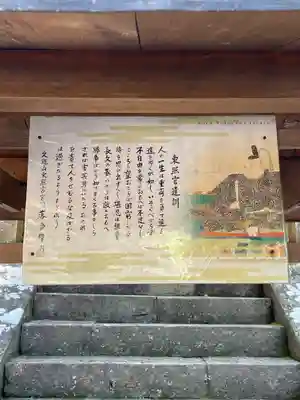 東照宮遺訓
人の一生は重荷を負て遠き
道をゆくが如し いそぐべからず
不自由を常とおもへば不足なし
こころに望おこらば困窮したる
時を思ひ出すべし 堪忍は無事
長久の基 いかりは敵とおもへ
勝事ばかり知てまくる事をしら
ざれば害其身にいたる おのれ
を責て人をせむるな 及ばざる
は過ぎたるよりまされり
久能山東照宮宮司